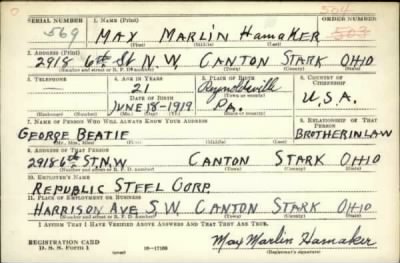 SERIAL NUMBER 1. NAME (Print) 504 ORDER NUMBER
569 MAX MARLIN HAMAKER 503
(First) (Middle) (Last)
2. ADDRESS (Print)
2918 6th St N.W. CANTON STARK OHIO
(Number and street or R. F. D. number) (Town) (County) (State)
3. TELEPHONE 4. AGE IN YEARS 5. PLACE OF BIRTH 6. COUNTRY OF CITIZENSHIP
21 Reynoldsville
DATE OF BIRTH
JUNE 18-1919 PA. U.S.A.
(Mo.) (Day) (Yr.) (State or country)
7. NAME OF PERSON WHO WILL ALWAYS KNOW YOUR ADDRESS 8. RELATIONSHIP OF THAT PERSON
GEORGE BEATIE BROTHER IN LAW
(Mr., Mrs., Miss) (First) (Middle) (Last)
9. ADDRESS OF THAT PERSON
2918 6th ST. N.W. CANTON STARK OHIO
(Number and street or R. F. D. number) (Town) (County) (State)
10. EMPLOYER'S NAME
REPUBLIC STEEL CORP.
11. PLACE OF EMPLOYMENT OR BUSINESS
HARRISON AVE S.W. CANTON STARK OHIO
(Number and street or R. F. D. number) (Town) (County) (State)
I AFFIRM THAT I HAVE VERIFIED ABOVE ANSWERS AND THAT THEY ARE TRUE.
REGISTRATION CARD
D. S. S. Form 1 16-17105 Max Marlin Hamaker
(over) (Registrant's signature)